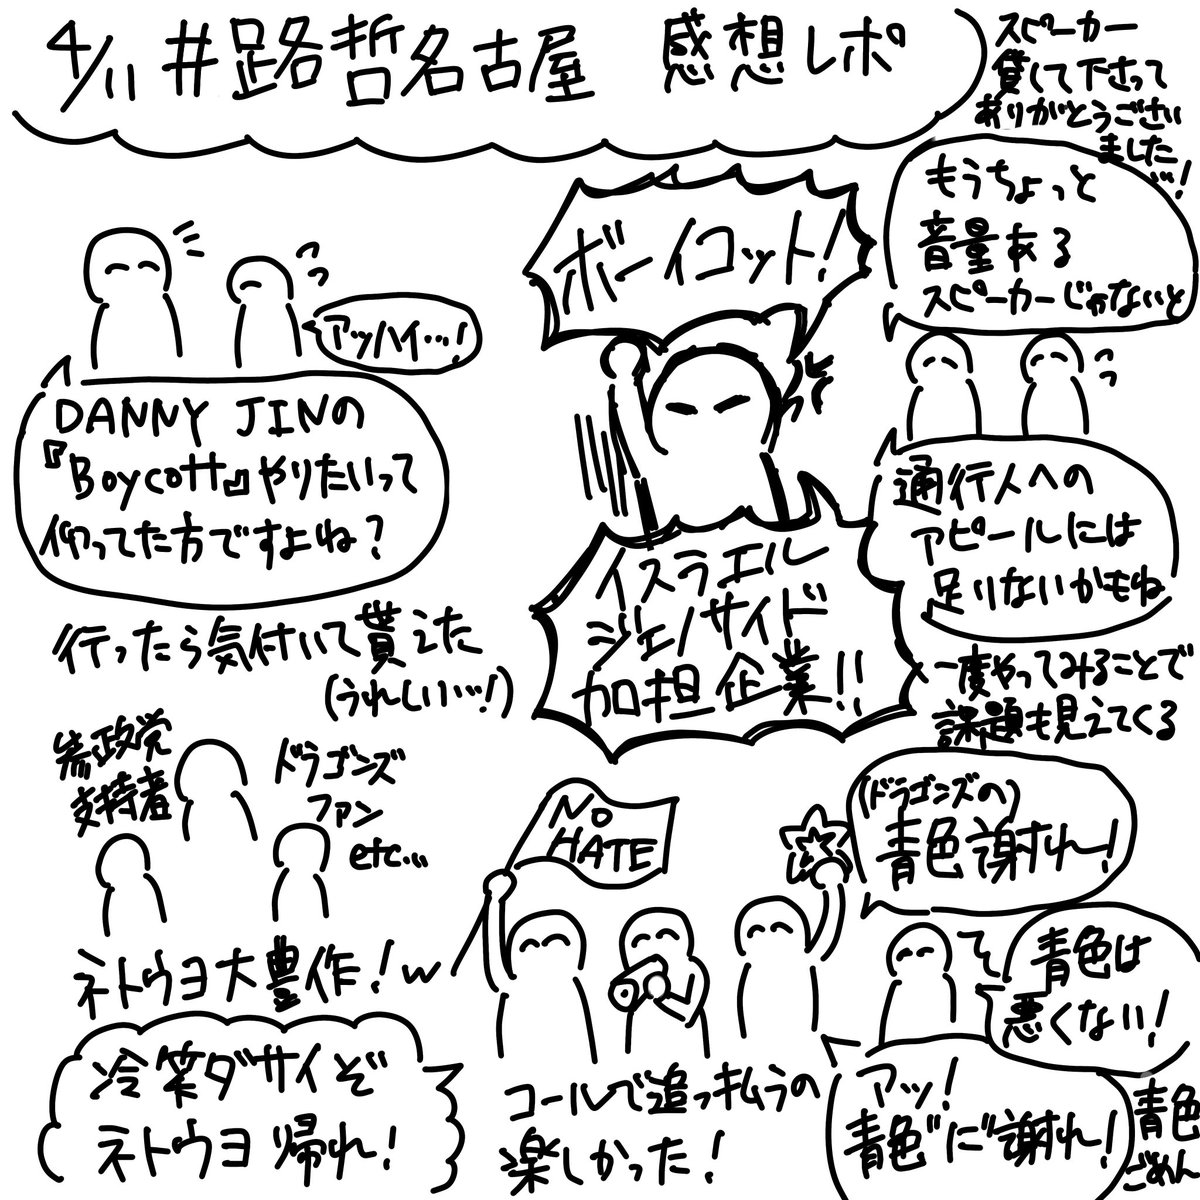 4/11 #路哲名古屋 感想レポ
スピーカー
貸して下さって
ありがとうござい
ました…!
もうちょっと
音量ある
スピーカーじゃないと
通行人への
アピールには
足りないかもね
一度やってみることで
課題も見えてくる
アッハイ…!
DANNY JINの
『Boycott』やりたいって
仰ってた方ですよね?
行ったら気付いて貰えた
(うれしい…!)
ボーイコット!
イスラエル
ジェノサイド
加担企業!!
参政党
支持者
ドラゴンズ
ファン
etc...
ネトウヨ大豊作!w
冷笑ダサイぞ
ネトウヨ帰れ!
NO
HATE
コールで追っ払うの
楽しかった!
(ドラゴンズの)
青色謝れー!
青色は
悪くない!
アッ!
青色"に"謝れ!
青色
ごめん